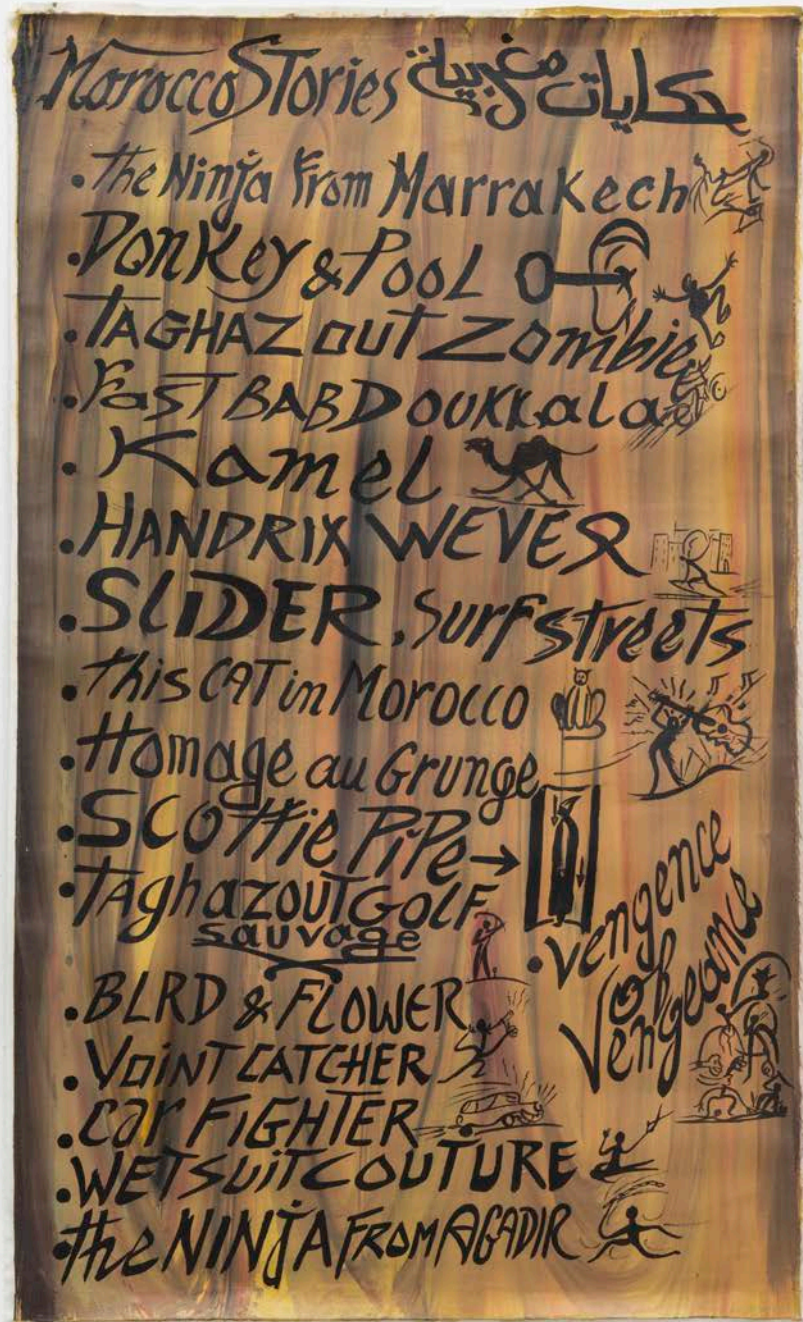 Morocco Stories حكايات مغربية
• the Ninja From Marrakech
• Donkey & Pool
• TAGHAZOUT Zombie
• FaST BAB DOUKKala
• Kamel
• HANDRIX WEVER
• SLIDER, Surf streets
• this CAT in Morocco
• Homage au Grunge
• SCOTTie PiPe →
• Taghazout GOLF
sauvage
• vengence
oh
Vengeance
• BLRD & FLOWER
• VOINT CATCHER
• Car FiGHTER
• WETSUIT COUTURE
• the NINJA FROM AGADIR